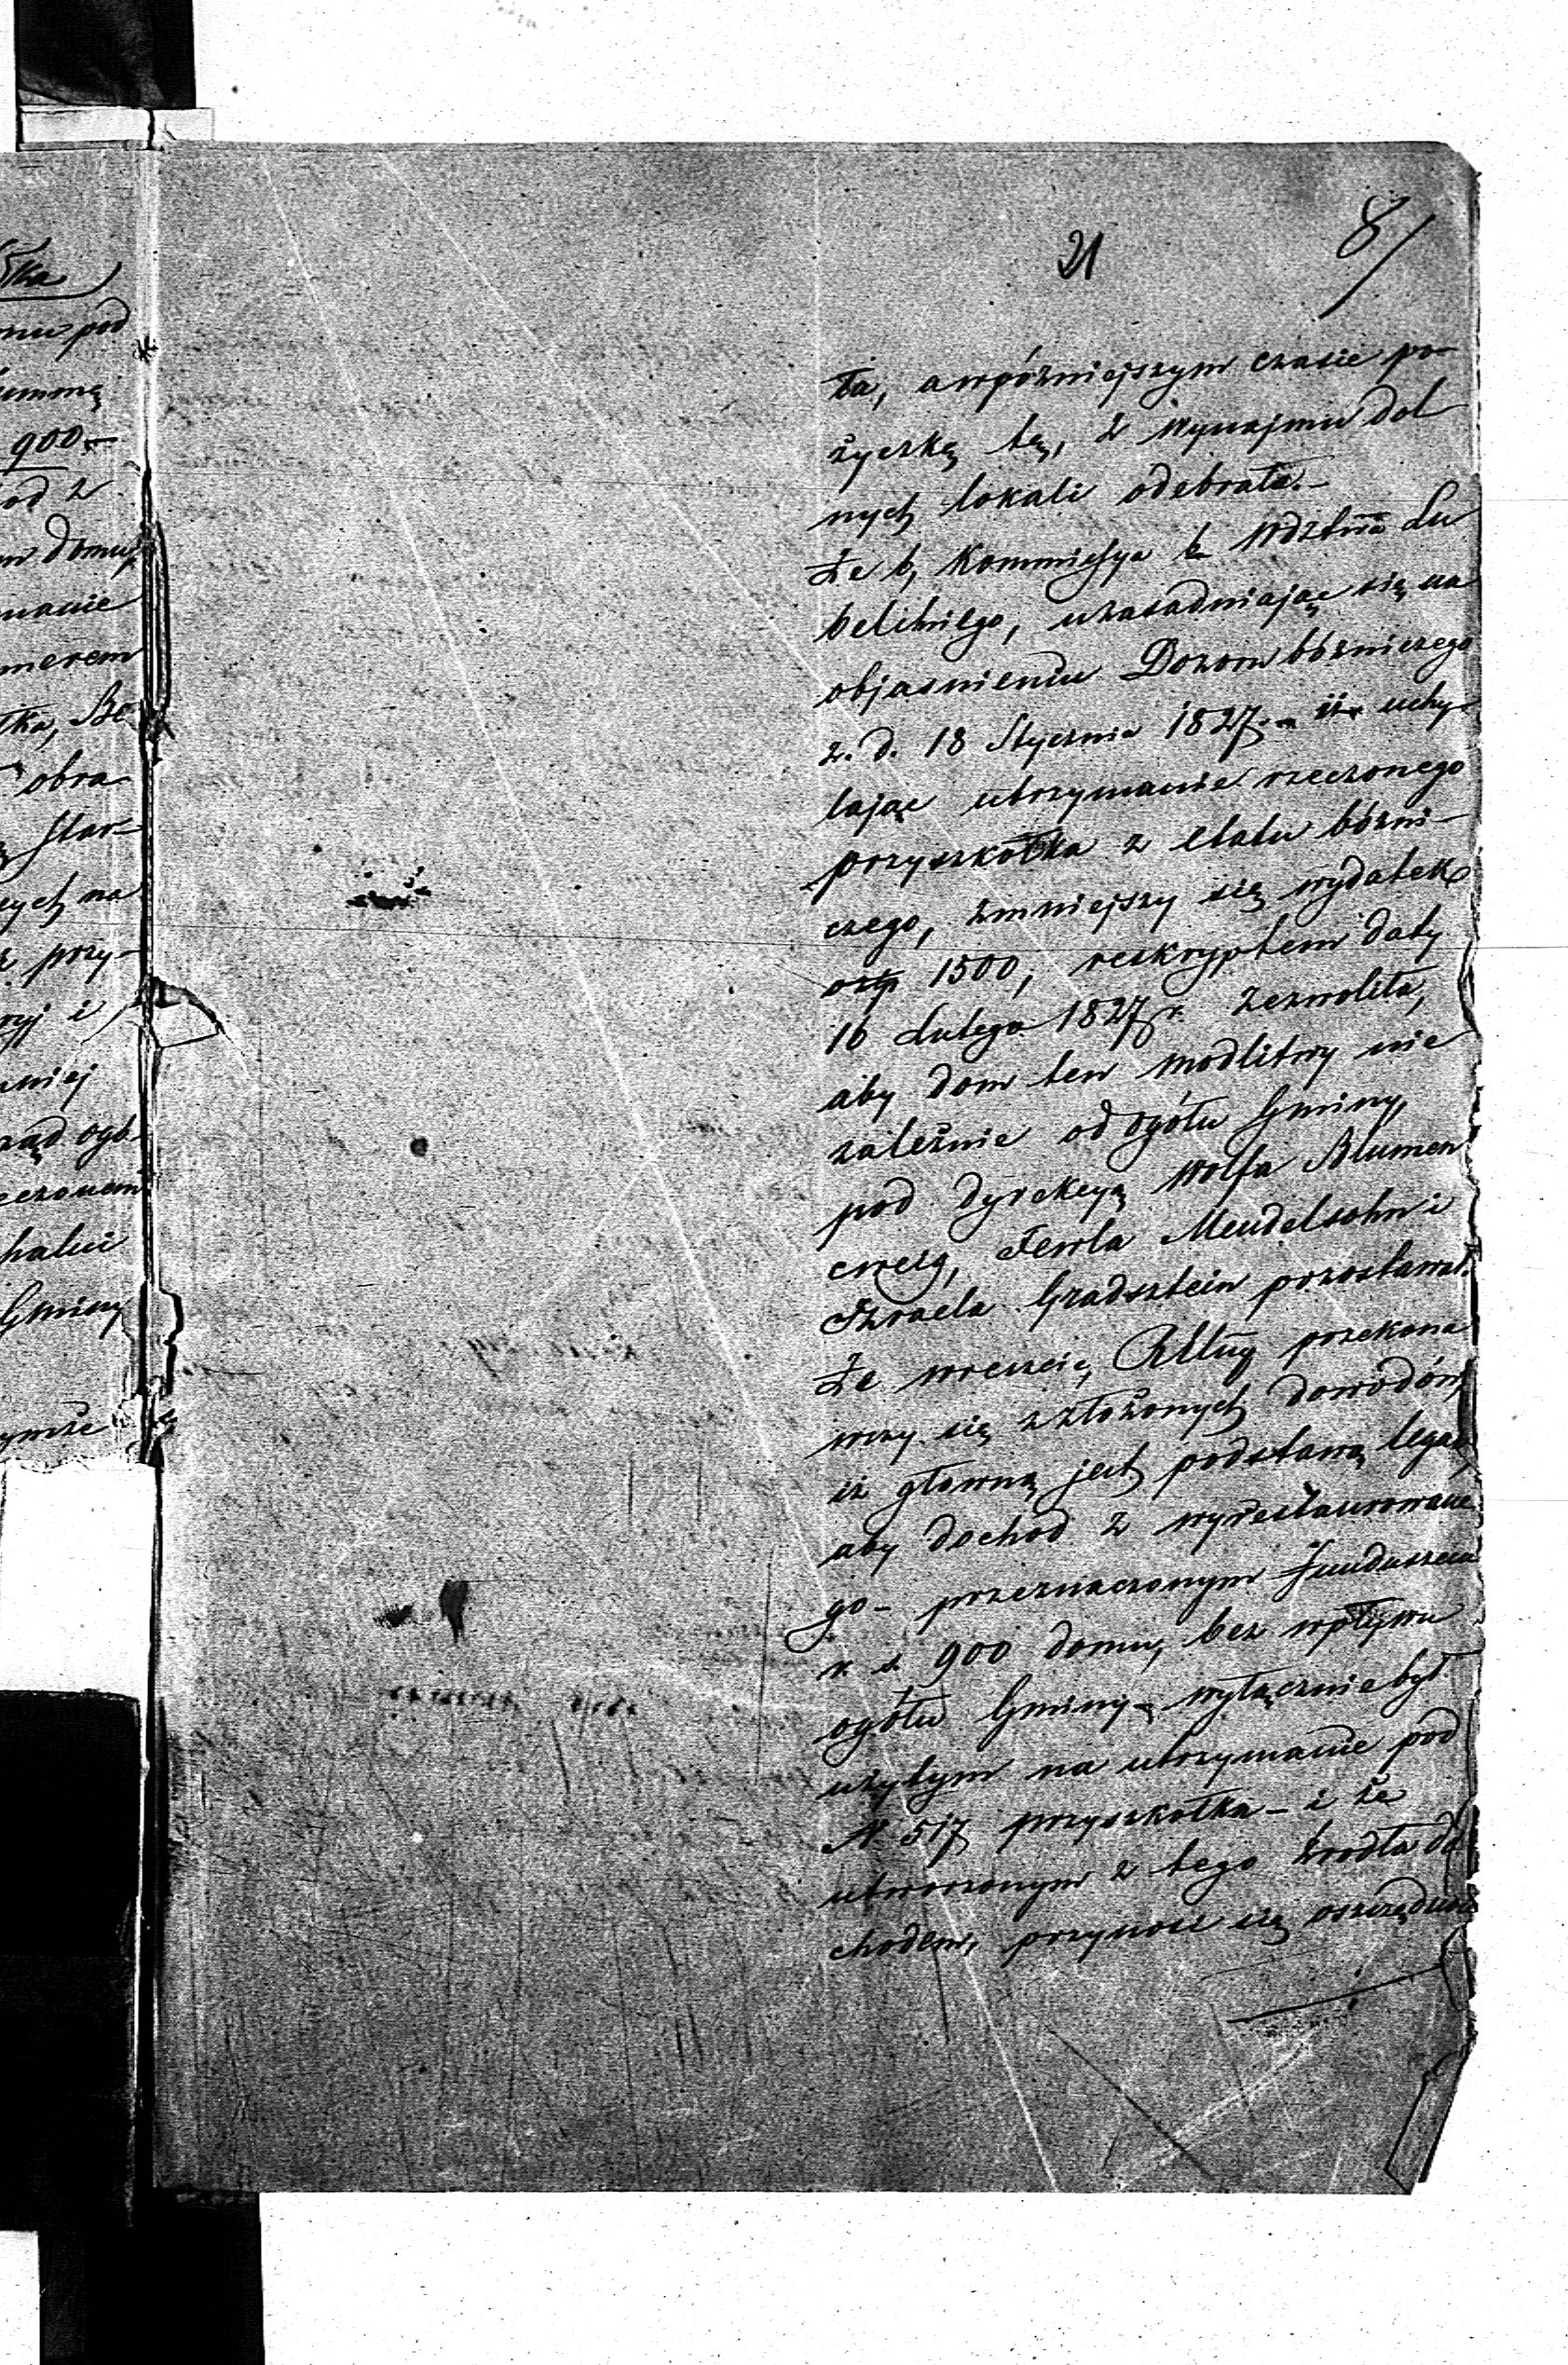 łka
mu pod
summą
900.—
od z
m domu,
manie
merem
łka, Be
obra
Star-
cych na
z przy-
ryj i
mniej
rząd ogó-
czonem
halni
Gminy
ymże
21
8/
ła, a wpóżniejszym czasie po-
życzkę tę, z wynajmu dol
nych lokali odebrała.—
Że b, Kommissya Wdztwa Lu
belskiego, uzasadniając się na
objasnieniu Dozoru bóżniczego
z. d. 18 Stycznia 1827.— iż uchy-
lając utrzymanie rzeczonego
przyszkołka z etatu bóżni-
czego, zmniejszy się wydatek
o złp 1500, reskryptem daty
16 Lutego 1827 r. zezwoliła,
aby dom ten modlitwy nie
zależnie od ogółu Gminy,
pod dyrekcyą Wolfa Blumen
cweig, Fewla Mendelsohn i
Izraela Gradsztein pozostawał.
Że wreszcie, przekona
wszy się z złożonych dowodów,
iż głowną jest podstawą lega
aby dochod z wyrestaurowane
go— przeznaczonym funduszem
r. s. 900 domu, bez wpływu
ogółu Gminy— wyłącznie był
użytym na utrzymanie pod
N. 517 przyszkołka— i że
utworzonym z tego źrodła do
chodem, przynosi się oszczędność